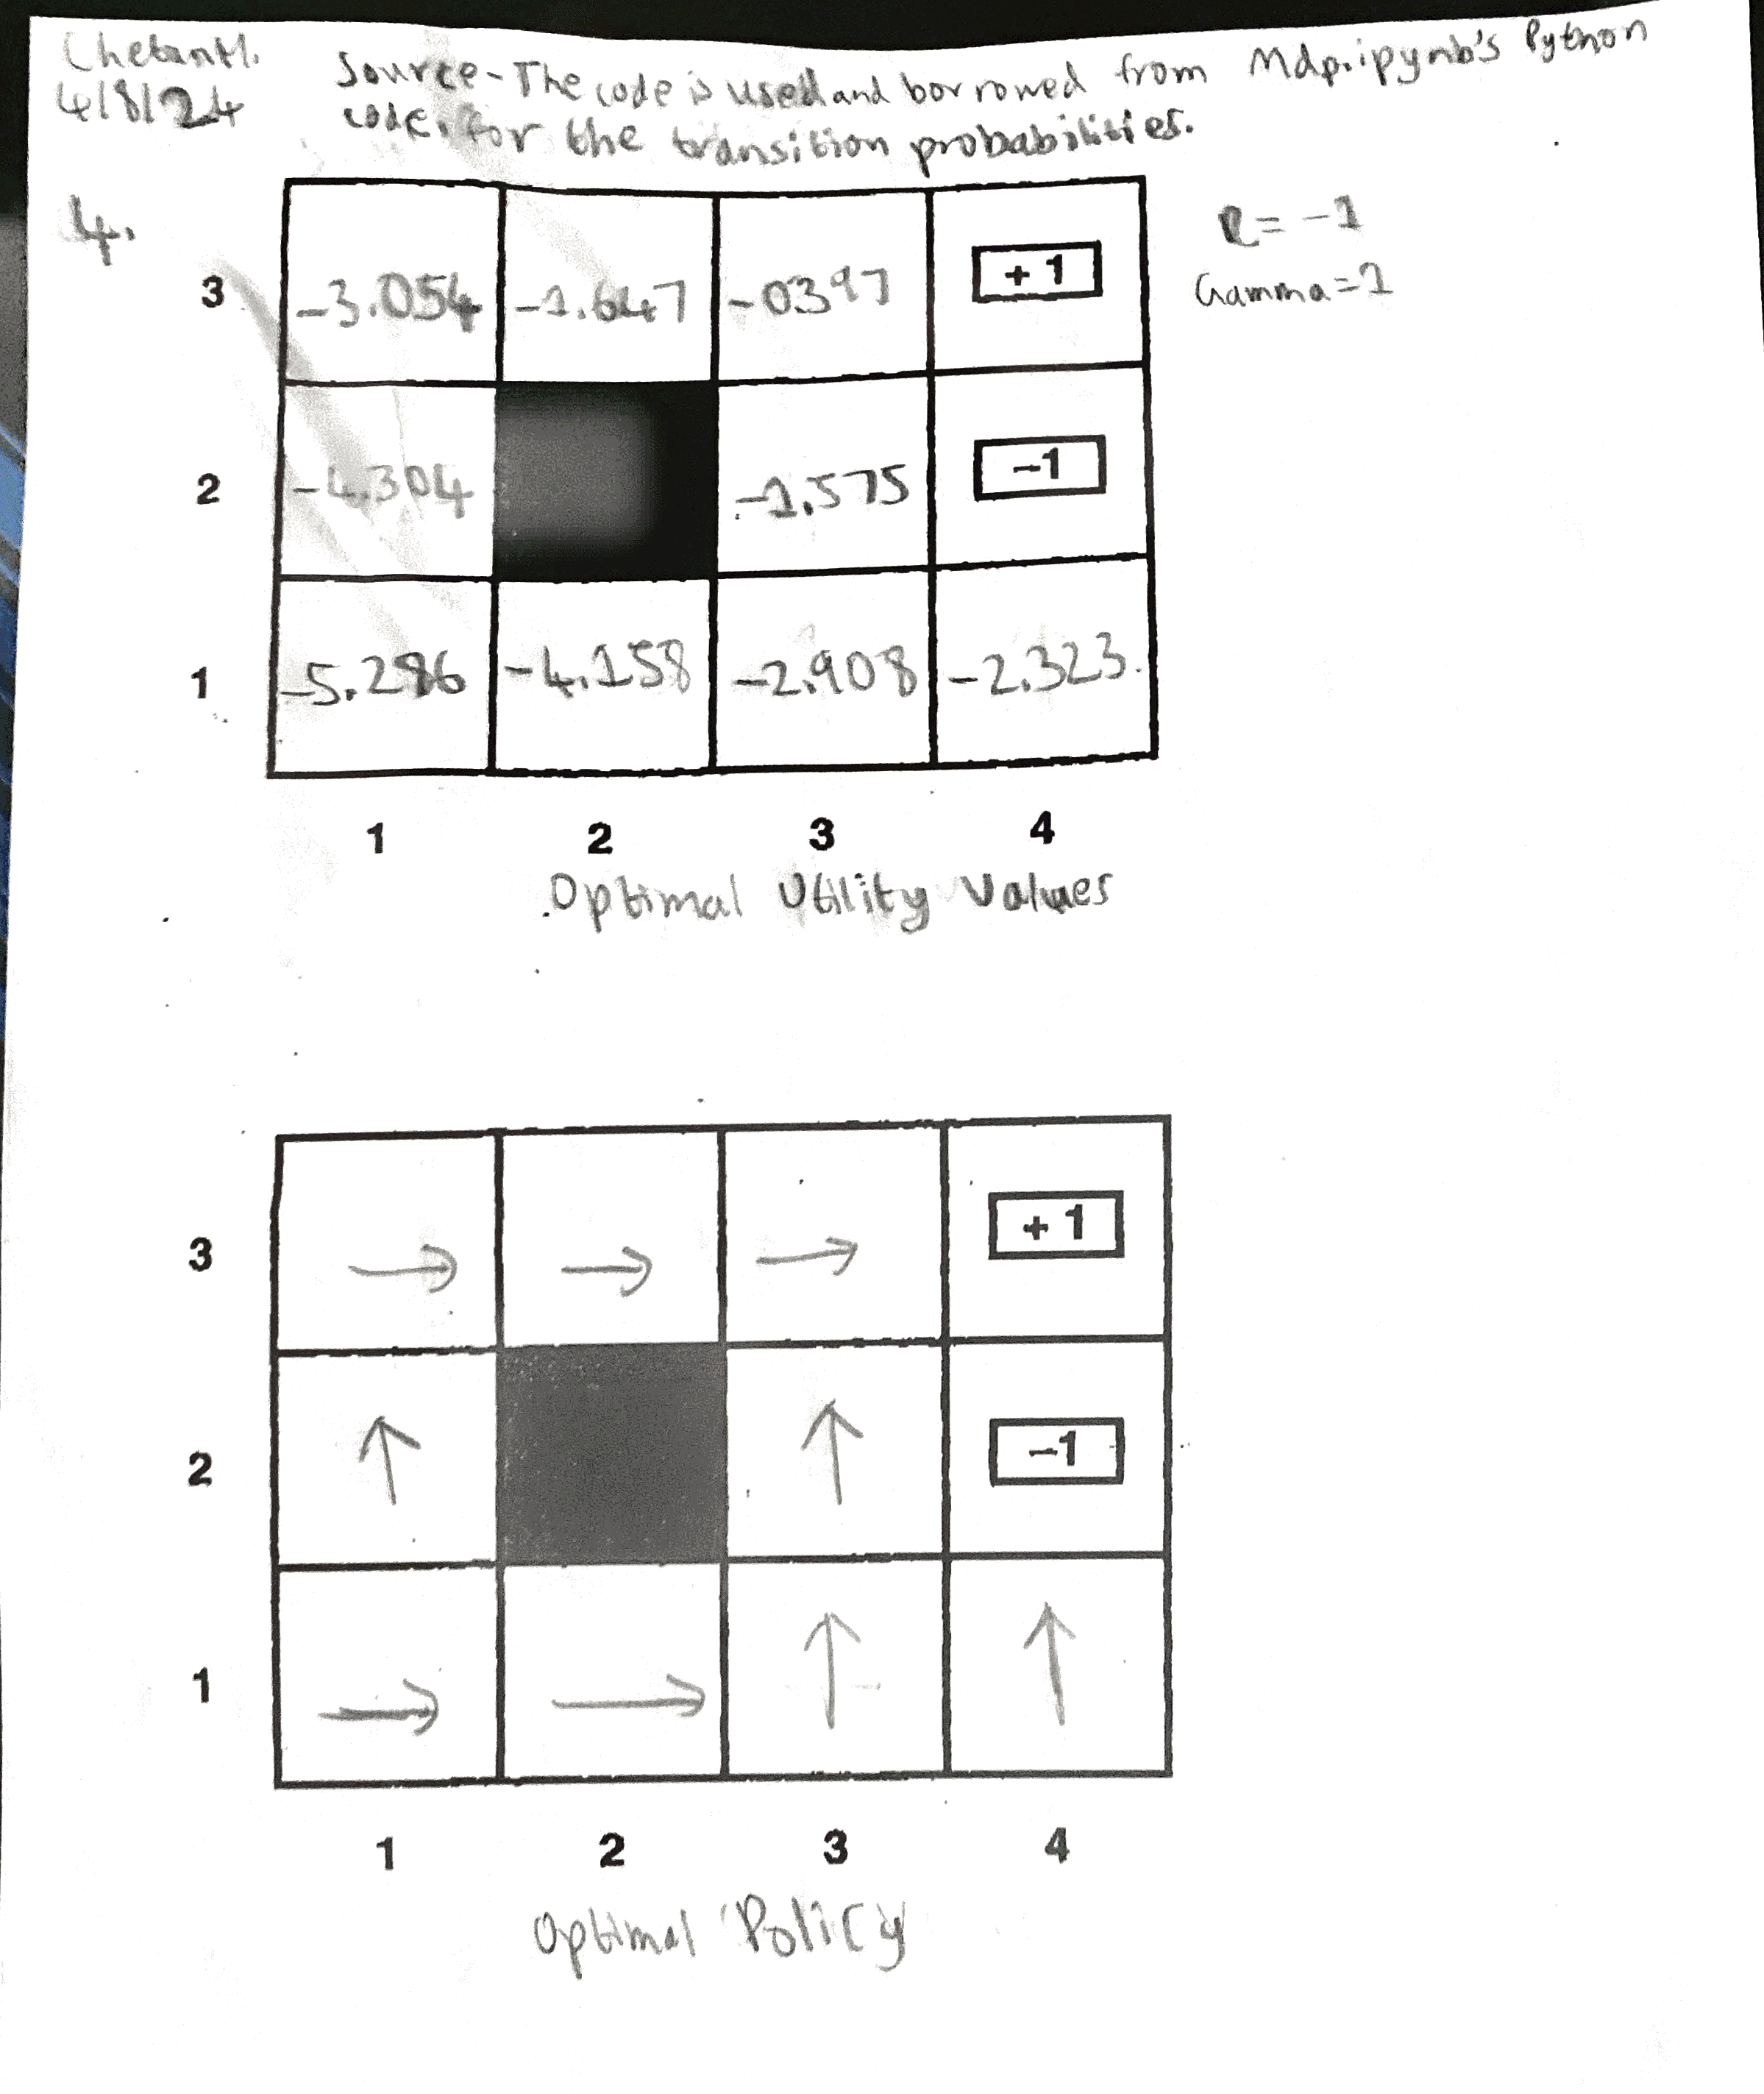 Chetan H.
4/8/24
Source - The code is used and borrowed from Mdp.ipynb's Python
code, for the transition probabilities.
4.
R = -1
Gamma = 1
3 -3.054 -1.647 -0397 +1
2 -4.304 -1.575 -1
1 -5.286 -4.158 -2.908 -2.323.
1 2 3 4
Optimal Utility Values
3 → → → +1
2 ↑ ↑ -1
1 → → ↑ ↑
1 2 3 4
Optimal Policy